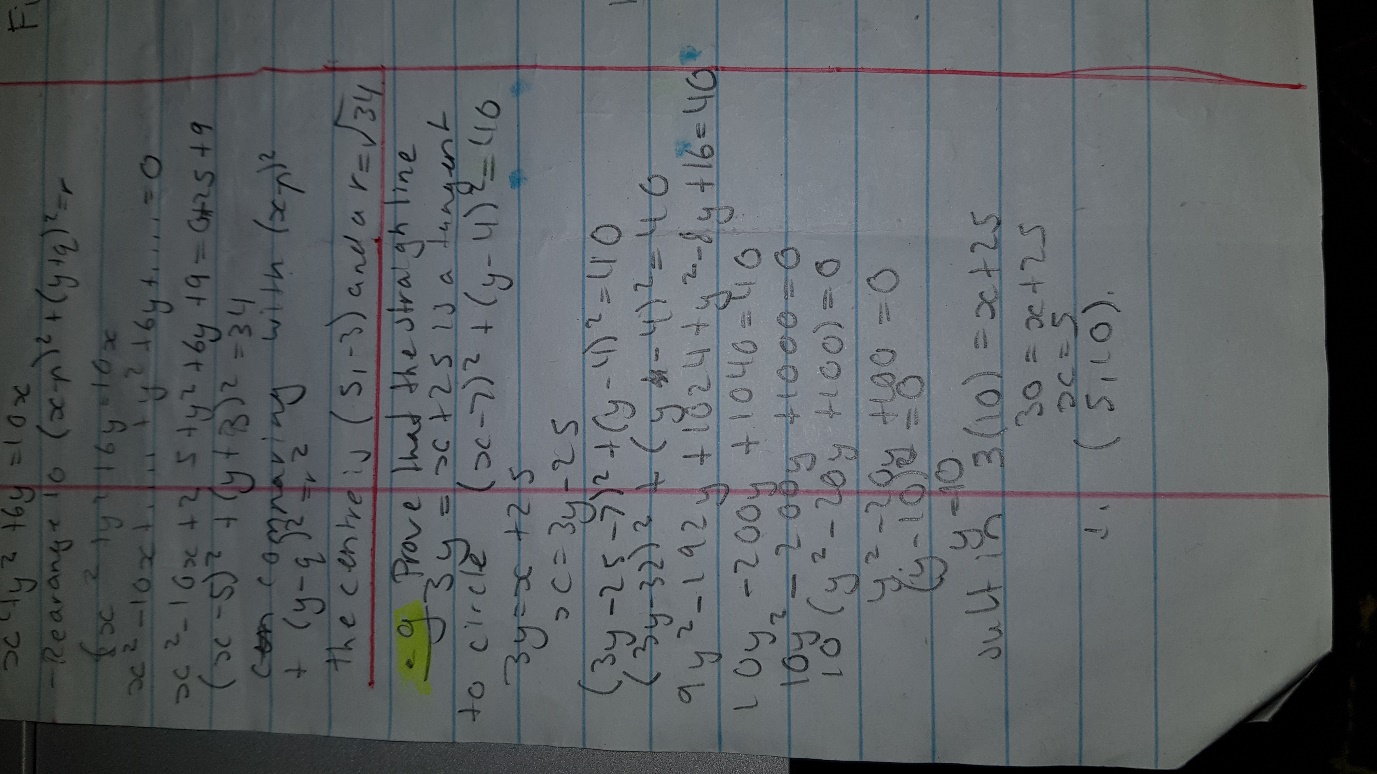 x²+y²+6y=10x
-Rearange to (x-p)²+(y+q)²=r
x²+y²+6y-10x
x²-10x+....+y²+6y+....=0
x²-10x+25+y²+6y+9=0+25+9
(x-5)²+(y+3)²=34
comparing with (x-p)²
+(y-q)²=r²
the centre is (5,-3) and a r=√34
Fi
e.g Prove that the straigh line
3y=x+25 is a tangent
to circle (x-7)²+(y-4)²=40
3y=x+25
x=3y-25
(3y-25-7)²+(y-4)²=40
(3y-32)²+(y-4)²=40
9y²-192y+1024+y²-8y+16=40
10y²-200y+1040=40
10y²-200y+1000=0
10(y²-20y+100)=0
y²-20y+100=0
(y-10)²=0
y=10
sub in 3(10)=x+25
30=x+25
x=5
(5,10).